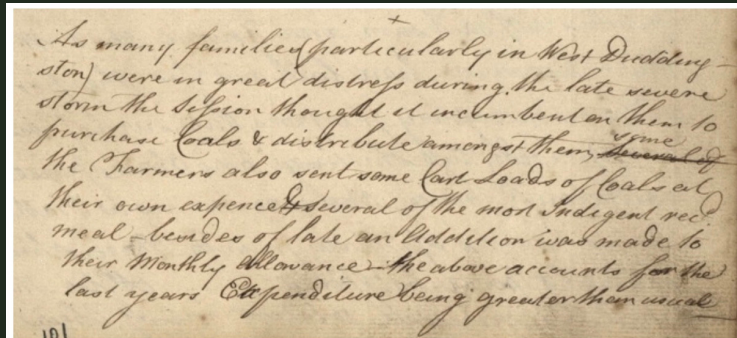 +
As many families (particularly in West Dudding-
ston) were in great distress during the late severe
storm the Session thought it incumbent on them to
purchase Coals & distribute amongst them, some
Several of
the Farmers also sent some Cart Loads of Coals at
their own expence & several of the most Indigent recd
meal - besides of late an Addition was made to
their Monthly allowance - the above accounts for the
last years Expenditure being greater than usual
101